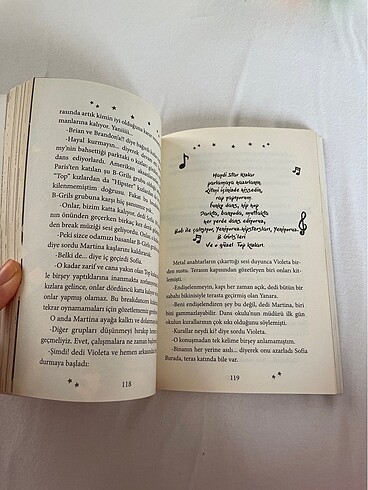 rasında artık kimin iyi olduğuna karar
manlarına kalıyor. Yaniiii...
-Brian ve Brandon'a!! diye
-Hayal kurmayın... diyerek
my'nin bahsettiği parktaki o kızları
dans ediyorlardı. Amerikan
Paris'ten katılan şu B-Grils grubu,
"Top" kızlardan da "Hipster"
kilenmemiştim doğrusu. Fakat bu
B-Grils grubuna karşı hiç şansınız
-Onlar, bizim katta kalıyor, dedi
nın önünden geçerken birkaç kez
den break müziği sesi geliyordu.
-Peki sizce odamızı basanlar B-Grils
diye sordu Martina kaşlarını kaldırarak.
-Belki de... diye iç geçirdi Sofia.
-O kadar zarif ve cana yakın olan Top
le birşey yaptıklarına inanmakta zorlanırım
kızlara gelince, onlar dördüncü katta,
onlar yapmış olamaz. Bu
tekrar oynamamaları için gözetlemesi
O anda Martina ayağa kalktı ve dolanmaya
-Diğer grupları düşünmeyi bırakıp hemen
geçmeliyiz. Evet, çalışmalara ne zaman
-Şimdi! dedi Violeta ve hemen arkasından
durmaya başladı:
118
Haydi Star kızlar
parlamaya hazırlanın
Ritmi içinizde hissedin,
rap yapıyorum
funky dans, hip hop
Parkta, banyoda, mutfakta
her yerde dans ediyoruz,
Bob ile çalışıyor, Yeniyoruz Hipstersları, Yeniyoruz
B Girls'leri
Ve o güzel Top kızları.
Metal anahtarların çıkarttığı sesi duyunca Violeta bir-
den sustu. Terasın kapısından gözetleyen biri onları kit-
lemişti.
-Endişelenmeyin, kapı her zaman açık, dedi bütün bir
sabahı bikinisiyle terasta geçirmiş olan Yanara.
-Beni endişelendiren şey bu değil, dedi Martina, biri
bizi gammazlayabilir. Dans okulu'nun müdürü ilk gün
okulun kurallarının çok katı olduğunu söylemişti.
-Kurallar neydi ki? diye sordu Violeta.
-O konuşmadan tek kelime birşey anlamamıştım.
-Binanın her yerine asılı... diyerek onu azarladı Sofia
Burada, teras katında bile var.
119